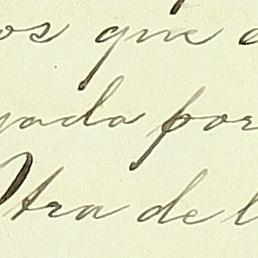 os que
yada por
Otra de l